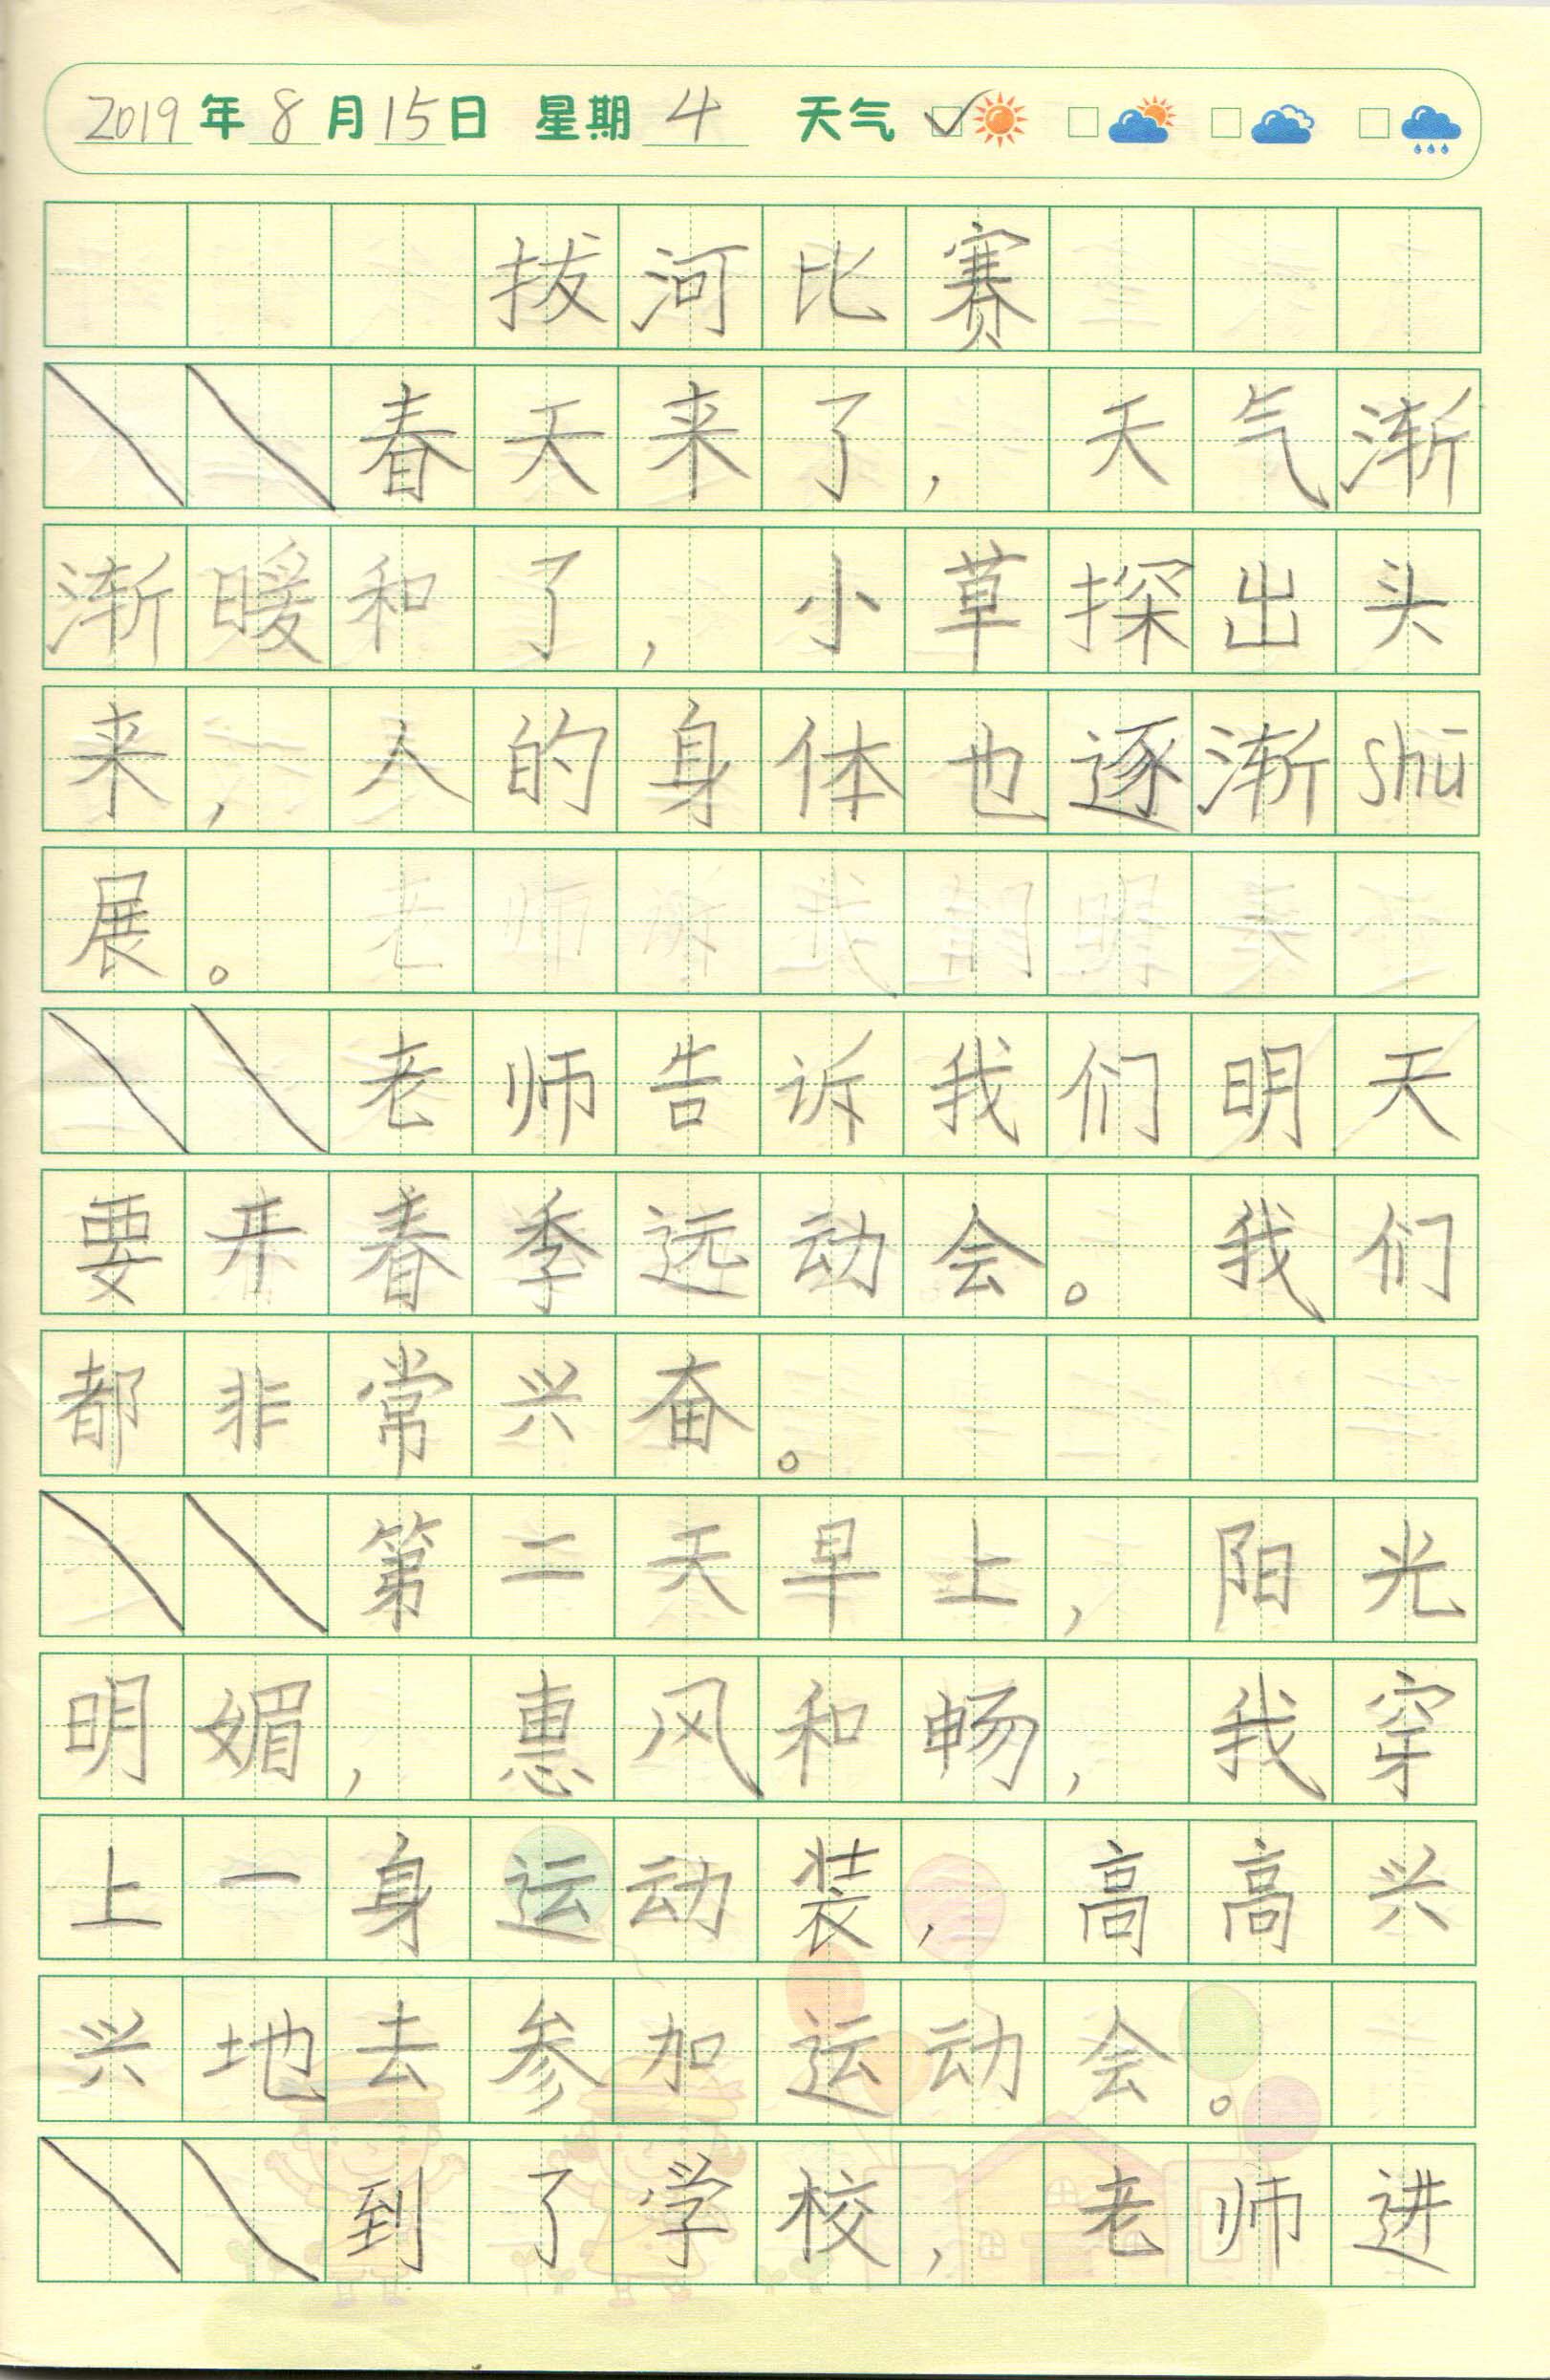 2019年8月15日 星期4 天气
拔河比赛
春天来了，天气渐
渐暖和了，小草探出头
来，人的身体也逐渐shū
展。
老师告诉我们明天
要开春季远动会。我们
都非常兴奋。
第二天早上，阳光
明媚，惠风和畅，我穿
上一身运动装，高高兴
兴地去参加运动会。
到了学校，老师进